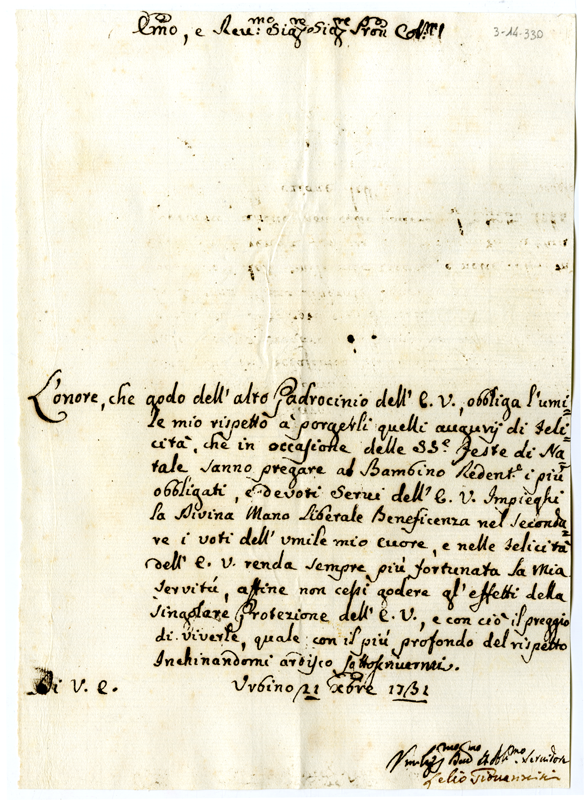 Emo, e Reu:mo Sigre Sigre Pron Colmo
3-14-330
L'onore, che godo dell' alto Padrocinio dell' E. V., obbliga l'umi=
le mio rispetto à porgerli quelli augurij di feli=
cità, che in occasione delle SS.e Feste di Na
tale sanno pregare al Bambino Redent.e i più
obbligati, e devoti Servi dell' E. V. Impieghi
la Divina Mano Liberale Beneficenza nel seconda=
re i voti dell' vmile mio cuore, e nelle felicità
dell' E. V. renda sempre più fortunata la mia
servitú, affine non cessi godere gl' effetti della
singolare Protezione dell' E. V., e con ciò il preggio
di viverle, quale con il più profondo del rispetto
Inchinandomi ardisco sottoscriuermi.
Di V. E. Vrbino 21 Xbre 1731
Vmilismo Deumo ed Obmo Servidore
Lelio